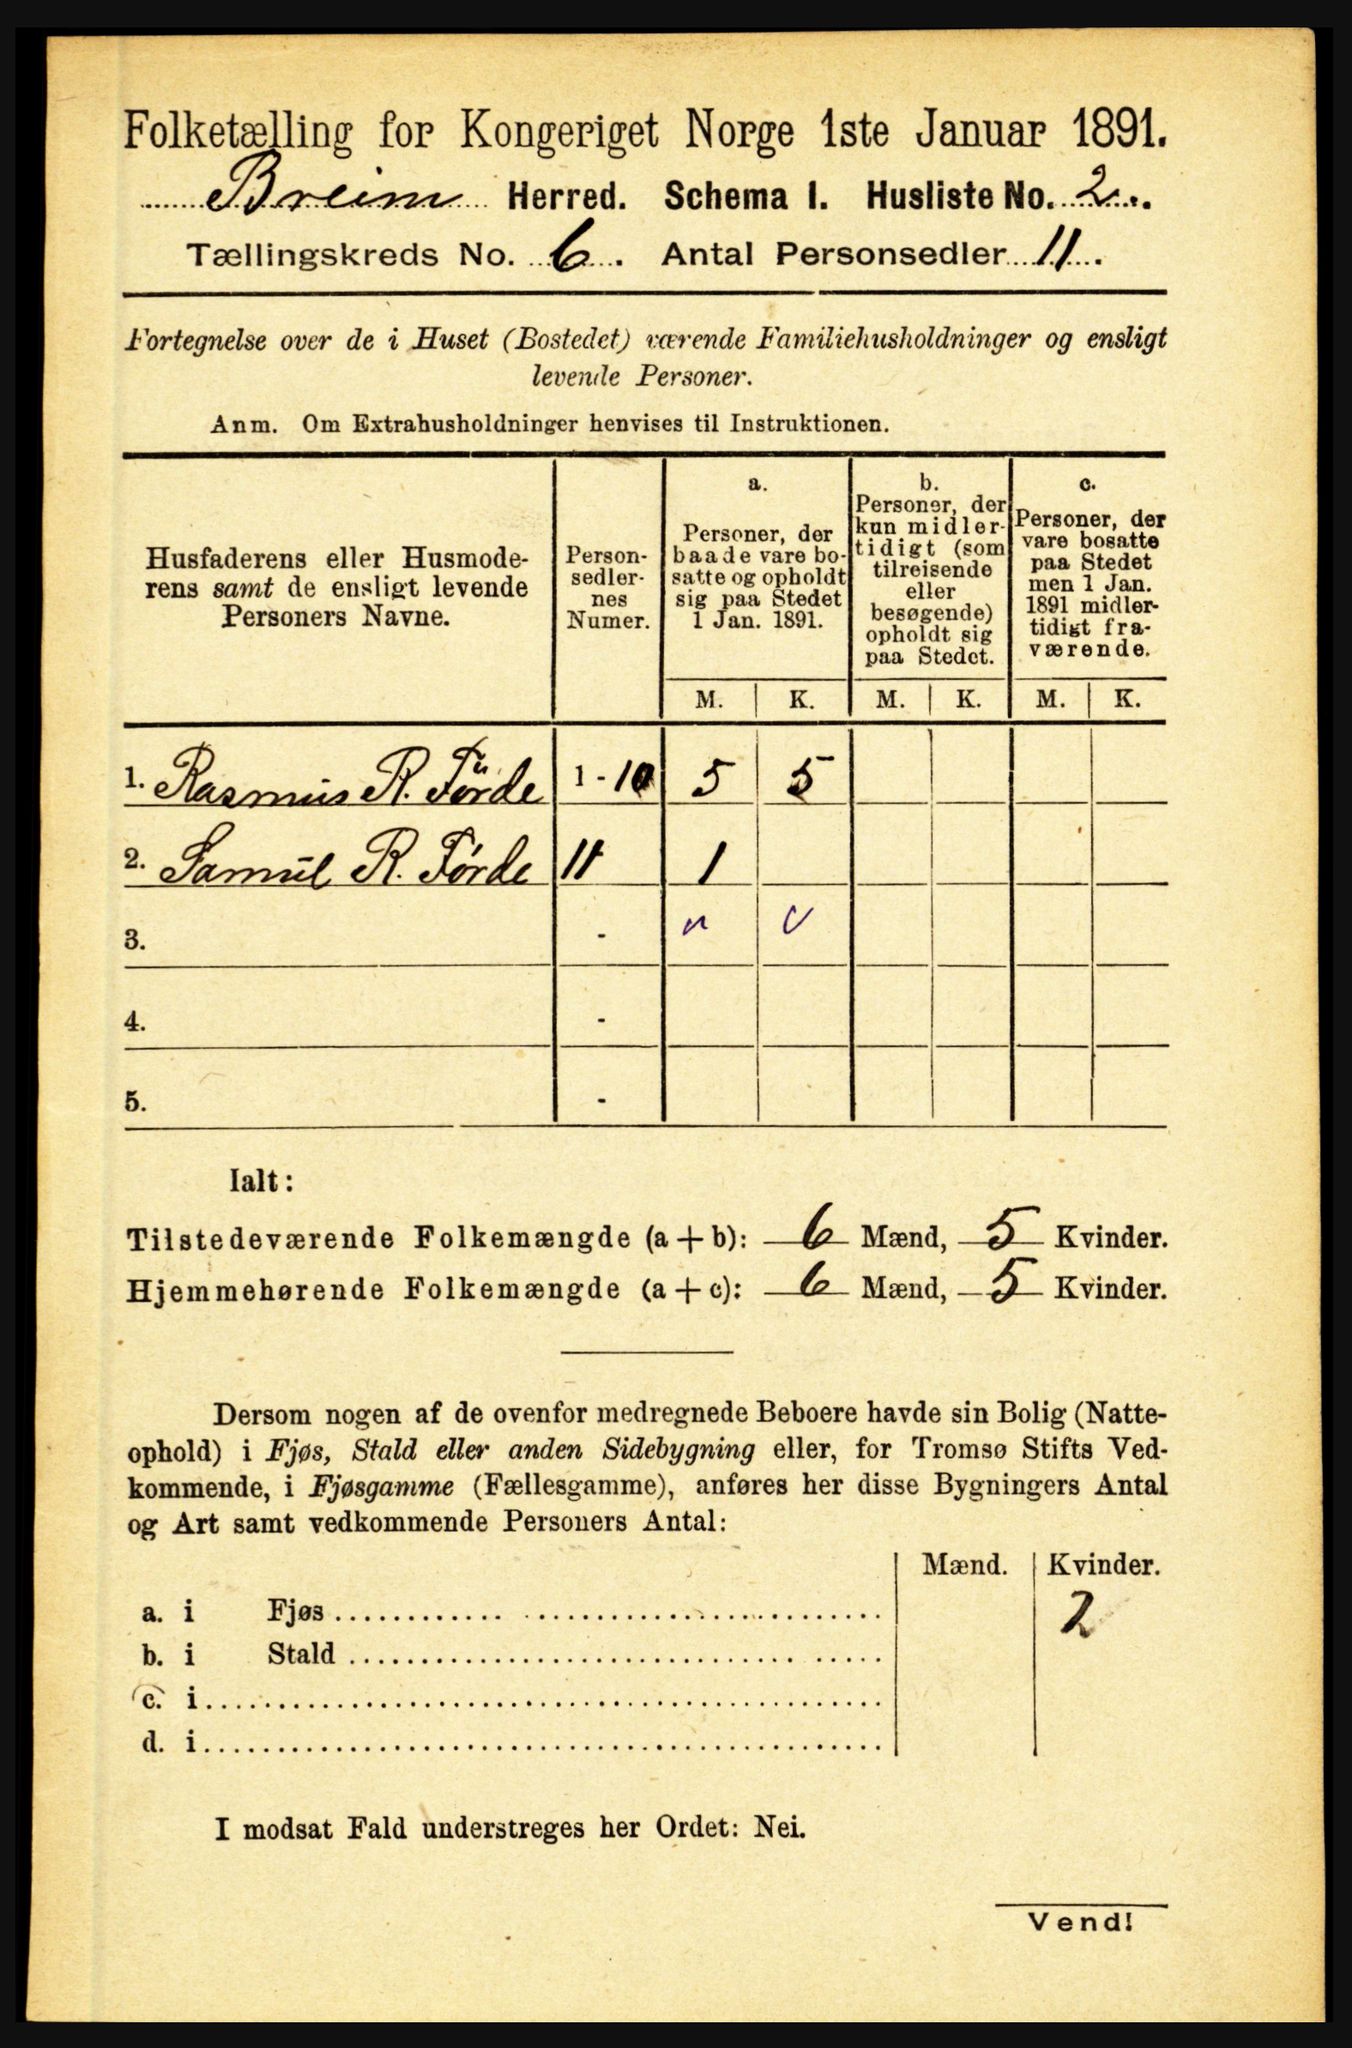 Folketælling for Kongeriget Norge 1ste Januar 1891.
Breim Herred. Schema I. Husliste No. 2.
Tællingskreds No. 6. Antal Personsedler 11.
Fortegnelse over de i Huset (Bostedet) værende Familiehusholdninger og ensligt
levende Personer.
Anm. Om Extrahusholdninger henvises til Instruktionen.
Husfaderens eller Husmode-
rens samt de ensligt levende
Personers Navne.
Person-
sedler-
nes
Numer.
a.
Personer, der
baade vare bo-
satte og opholdt
sig paa Stedet
1 Jan. 1891.
b.
Personer, der
kun midler-
tidigt (som
tilreisende
eller
besøgende)
opholdt sig
paa Stedet.
c.
Personer, der
vare bosatte
paa Stedet
men 1 Jan.
1891 midler-
tidigt fra-
værende.
M. K. M. K. M. K.
1. Rasmus R. Førde 1 - 10 5 5
2. Samul R. Førde 11 1
3. -
4. -
5. -
Ialt:
Tilstedeværende Folkemængde (a + b): 6 Mænd, 5 Kvinder.
Hjemmehørende Folkemængde (a + c): 6 Mænd, 5 Kvinder.
Dersom nogen af de ovenfor medregnede Beboere havde sin Bolig (Natte-
ophold) i Fjøs, Stald eller anden Sidebygning eller, for Tromsø Stifts Ved-
kommende, i Fjøsgamme (Fællesgamme), anføres her disse Bygningers Antal
og Art samt vedkommende Personers Antal:
Mænd. Kvinder.
a. i Fjøs 2
b. i Stald
c. i
d. i
I modsat Fald understreges her Ordet: Nei.
Vend!